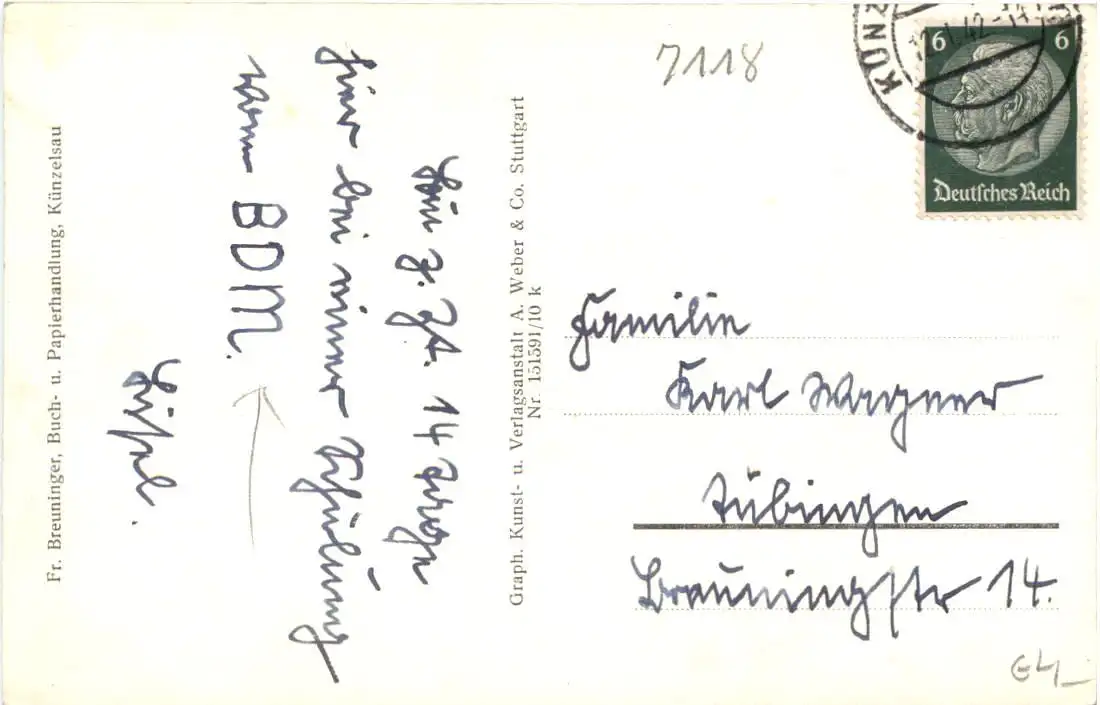 7118
KÜNZ
42
6 6
Deutsches Reich
Bin z. Zt. 14 Tage
hier bei einer Schulung
vom BDM.
Familie
Karl Wagner
Tübingen
Breuningstr 14.
Graph. Kunst- u. Verlagsanstalt A. Weber & Co. Stuttgart
Nr. 151591/10 k
Fr. Breuninger, Buch- u. Papierhandlung, Künzelsau